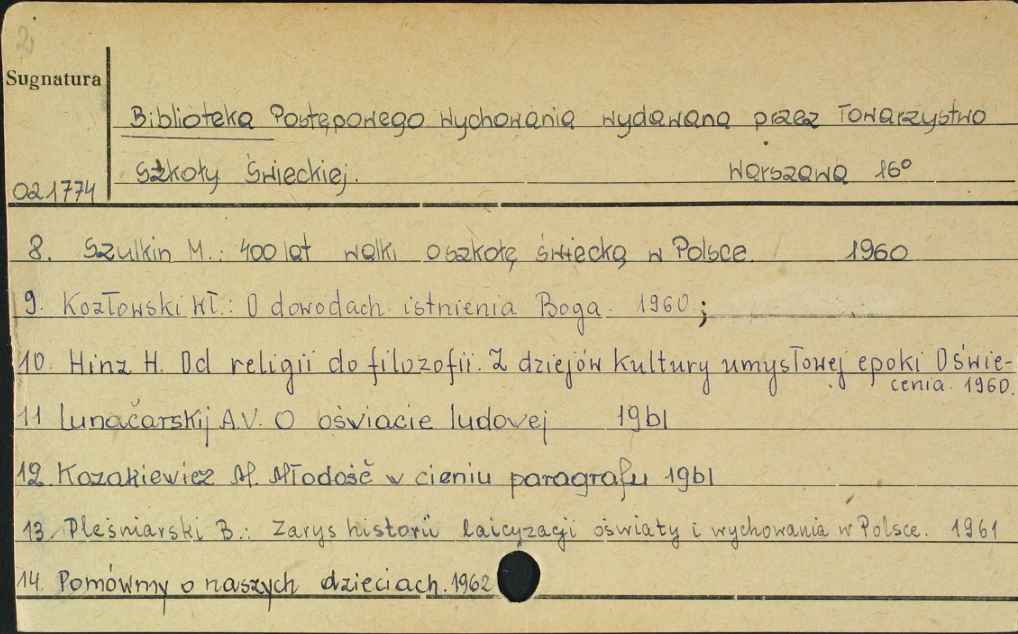 2
Sugnatura
Biblioteka Postępowego Wychowania wydawana przez Towarzystwo
Szkoły Świeckiej. Warszawa 16°
021774
8. Szulkin M.: 400 lat walki o szkołę świecką w Polsce 1960
9. Kozłowski Wł.: O dowodach istnienia Boga. 1960;
10. Hinz H. Od religii do filozofii. Z dziejów kultury umysłowej epoki Oświe-
cenia. 1960.
11 Lunačarskij A.V. O oświacie ludovej 1961
12. Kozakiewicz M. Młodość w cieniu paragrafu 1961
13. Pleśniarski B.: Zarys historii laicyzacji oświaty i wychowania w Polsce. 1961
14. Pomówmy o naszych dzieciach. 1962